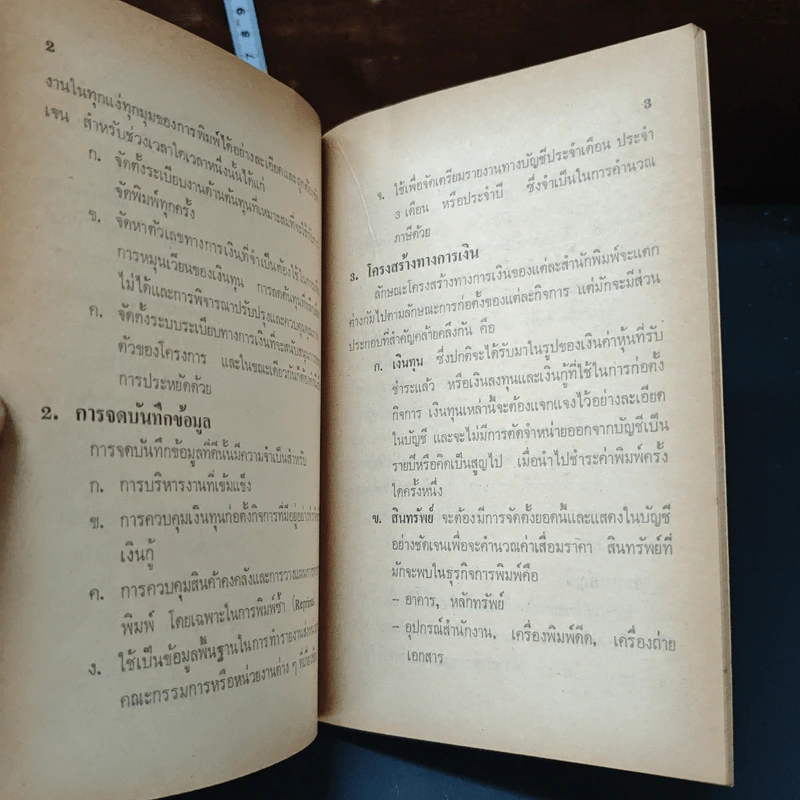 2
งานในทุกแง่ทุกมุมของการพิมพ์ได้อย่างละเอียดและ
เจน สำหรับช่วงเวลาใดเวลาหนึ่งนั้นได้แก่
ก. จัดตั้งระเบียบงานด้านต้นทุนที่เหมาะสมที่จะใช้
จัดพิมพ์ทุกครั้ง
ข. จัดหาตัวเลขทางการเงินที่จำเป็นต้องใช้ใน
การหมุนเวียนของเงินทุน การลดต้นทุนที่
ไม่ได้และการพิจารณาปรับปรุงและควบคุม
ค. จัดตั้งระบบระเบียบทางการเงินที่จะสนับสนุน
ตัวของโครงการ และในขณะเดียวกันก็ต้อง
การประหยัดด้วย
2. การจดบันทึกข้อมูล
การจดบันทึกข้อมูลที่ดีนั้นมีความจำเป็นสำหรับ
ก. การบริหารงานที่เข้มแข็ง
ข. การควบคุมเงินทุนก่อตั้งกิจการที่มีอยู่อย่าง
เงินกู้
ค. การควบคุมสินค้าคงคลังและการวางแผน
พิมพ์ โดยเฉพาะในการพิมพ์ซ้ำ (Reprint
ง. ใช้เป็นข้อมูลพื้นฐานในการทำรายงาน
คณะกรรมการหรือหน่วยงานต่าง ๆ ที่เกี่ยว
3
จ. ใช้เพื่อจัดเตรียมรายงานทางบัญชีประจำเดือน ประจำ
3 เดือน หรือประจำปี ซึ่งจำเป็นในการคำนวณ
ภาษีด้วย
3. โครงสร้างทางการเงิน
ลักษณะโครงสร้างทางการเงินของแต่ละสำนักพิมพ์จะแตก
ต่างกันไปตามลักษณะการก่อตั้งของแต่ละกิจการ แต่มักจะมีส่วน
ประกอบที่สำคัญคล้ายคลึงกัน คือ
ก. เงินทุน ซึ่งปกติจะได้รับมาในรูปของเงินค่าหุ้นที่รับ
ชำระแล้ว หรือเงินลงทุนและเงินกู้ที่ใช้ในการก่อตั้ง
กิจการ เงินทุนเหล่านี้จะต้องแจกแจงไว้อย่างละเอียด
ในบัญชี และจะไม่มีการตัดจำหน่ายออกจากบัญชีเป็น
รายปีหรือคิดเป็นสูญไป เมื่อนำไปชำระค่าพิมพ์ครั้ง
ใดครั้งหนึ่ง
ข. สินทรัพย์ จะต้องมีการจัดตั้งยอดนี้และแสดงในบัญชี
อย่างชัดเจนเพื่อจะคำนวณค่าเสื่อมราคา สินทรัพย์ที่
มักจะพบในธุรกิจการพิมพ์คือ
– อาคาร, หลักทรัพย์
– อุปกรณ์สำนักงาน, เครื่องพิมพ์ดีด, เครื่องถ่าย
เอกสาร